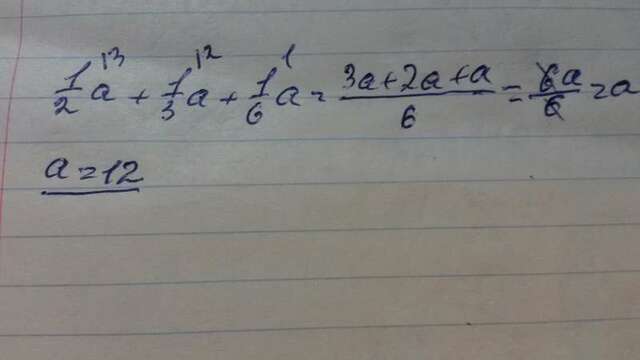 1/2 a^{\3} + 1/3 a^{\2} + 1/6 a^{\1} = (3a+2a+a)/6 = 6a/6 = a
a=12